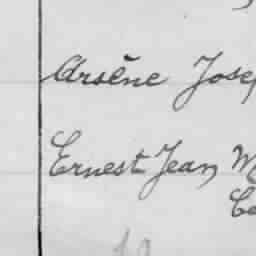 Arsène Josep
Ernest Jean M